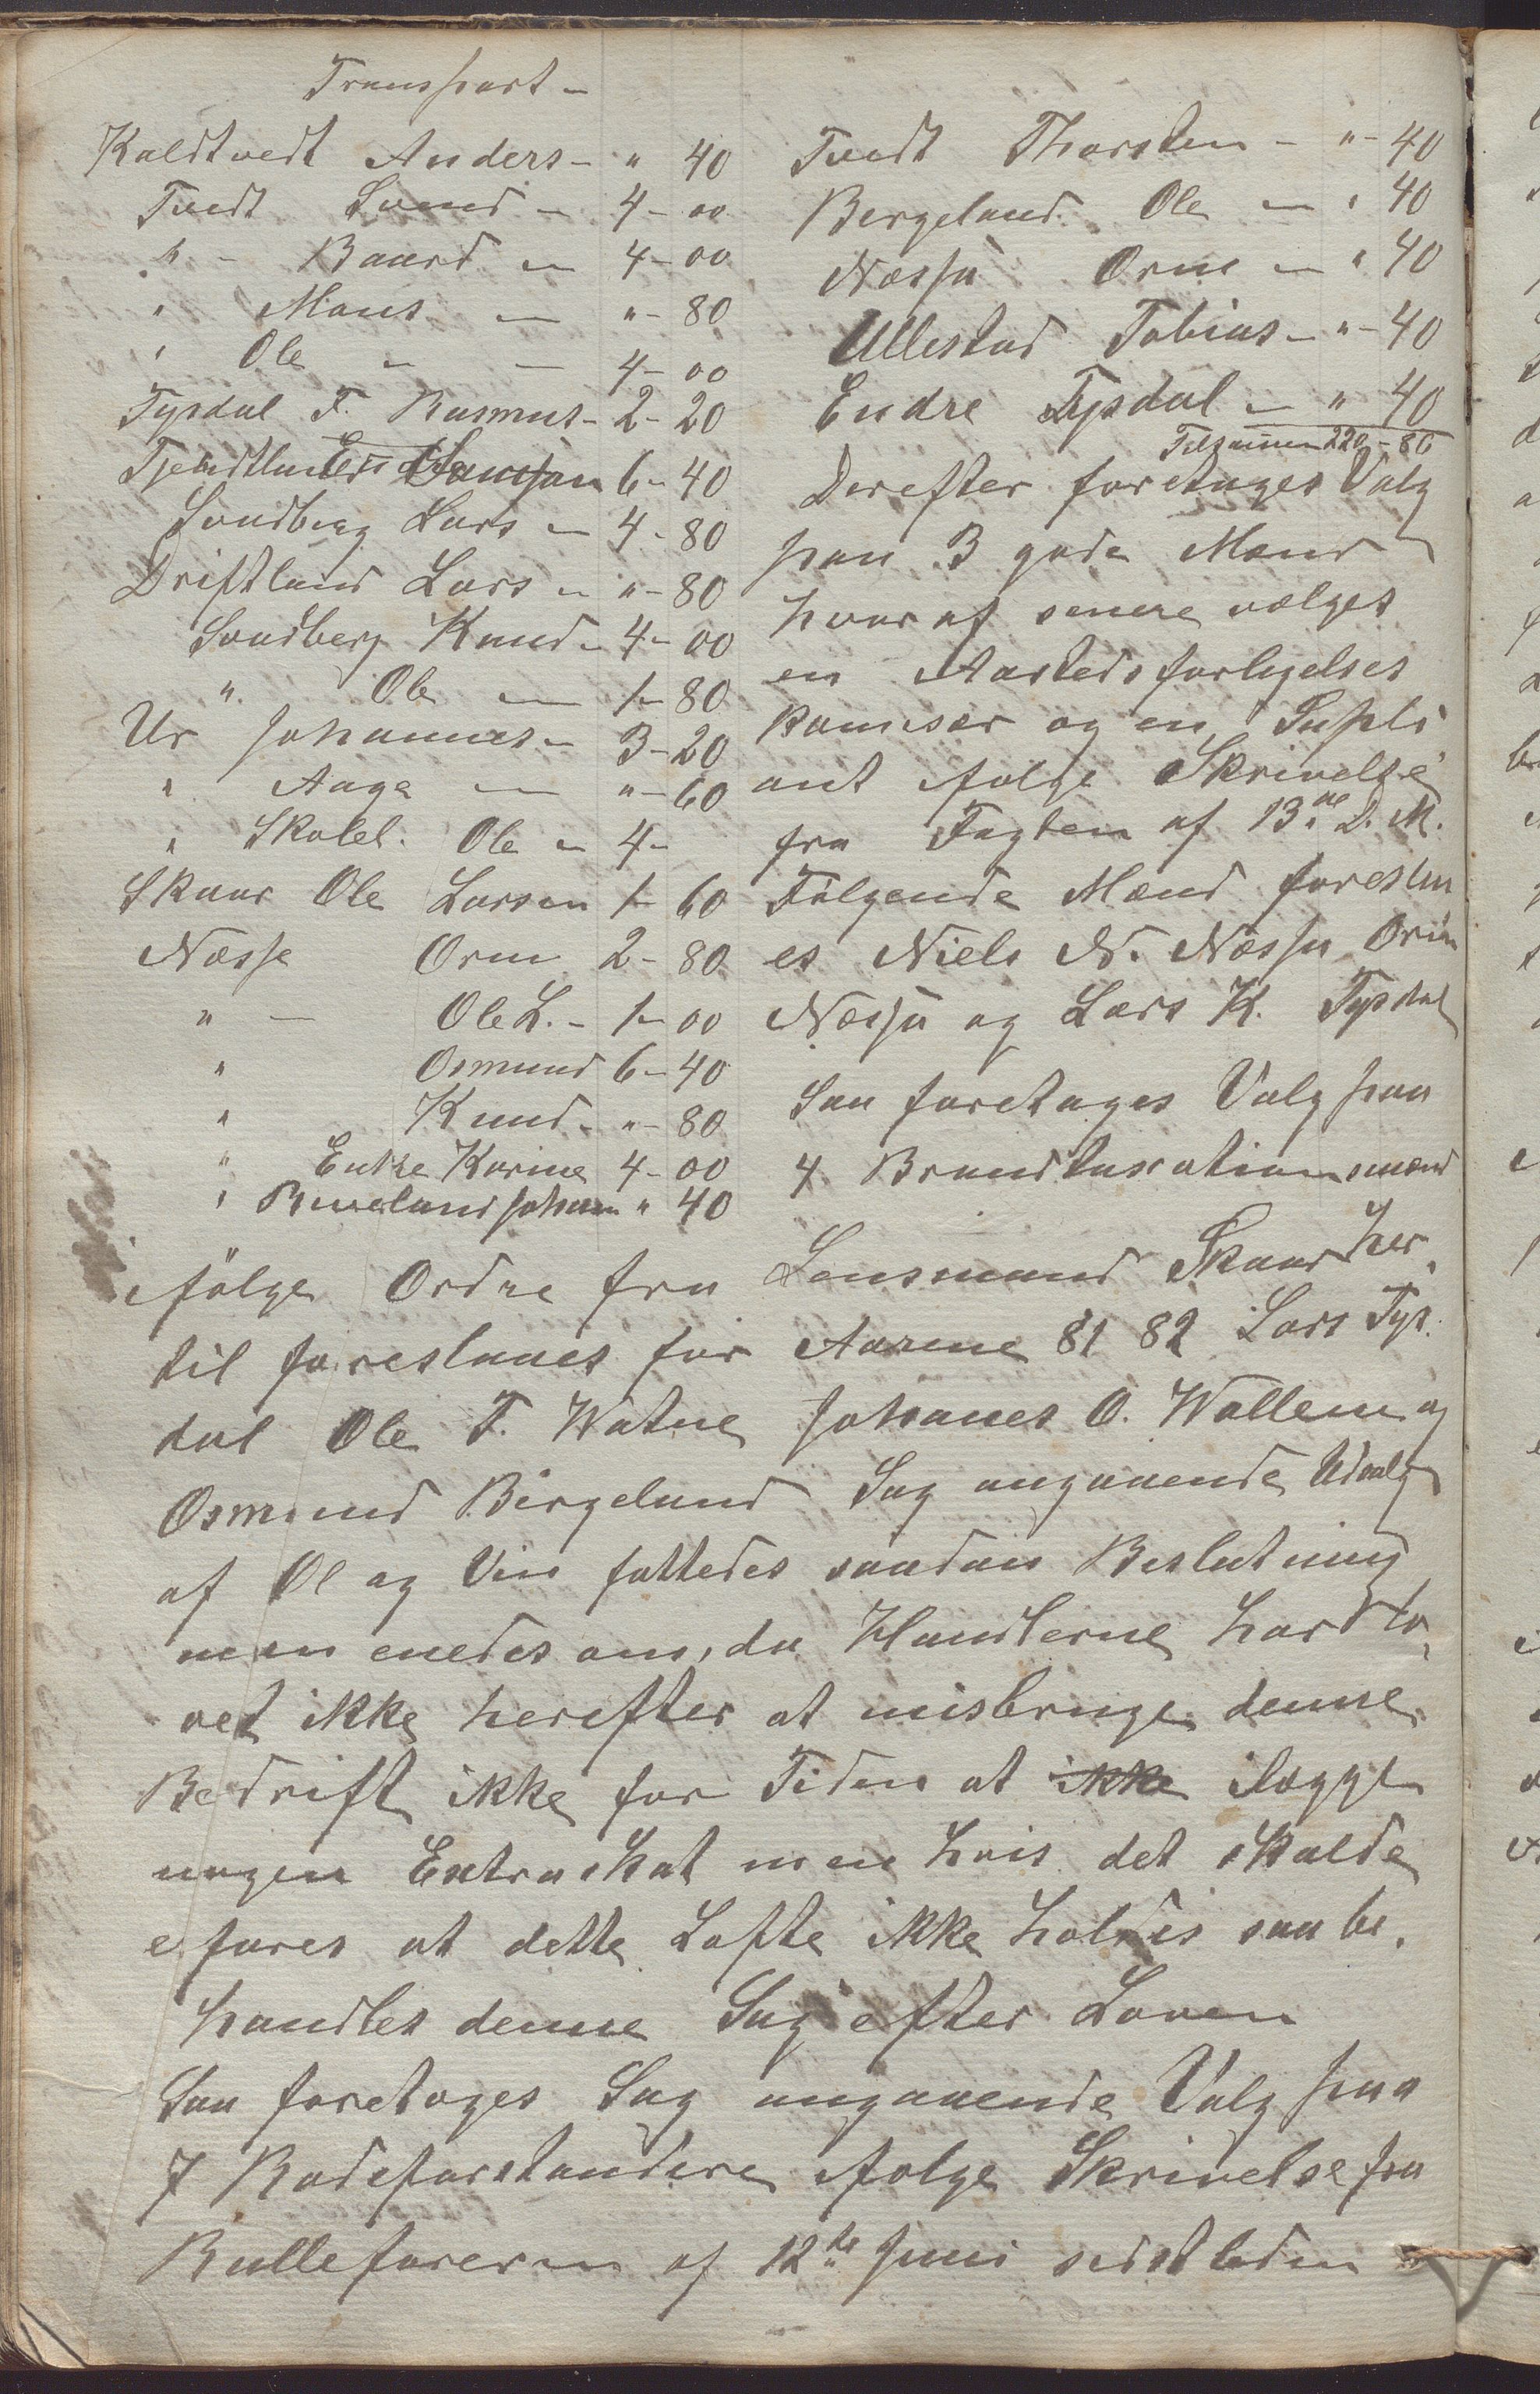 Transport -
Kaldtvedt Anders - " 40
Tvedt Svend - 4 - 00
" - Baard - 4 - 00
" Mons - " - 80
" Ole - - 4 - 00
Tysdal T. Rasmus - 2 - 20
Tjendtland 6 - 40
Svudberg Lars - 4 - 80
Driftland Lars - " - 80
Svudberg Knud - 4 - 00
" Ole - 1 - 80
Ur Johannes - 3 - 20
" Aage - " - 60
" Skolel. Ole - 4 -
Skaar Ole Larsen 1 - 60
Næsse Orm 2 - 80
" - Ole L. - 1 - 00
" Osmund 6 - 40
" Knud - " - 80
" Enke Karine 4 - 00
" Riveland Johan " 40
Tvedt Thorsten - " - 40
Bergeland Ole - " 40
Næssa Orm - " 40
Ullestad Tobias - " - 40
Endre Tysdal - " 40
Tilsammen 220 - 80
Derefter foretages Valg
paa 3 gode Mænd
hvoraf senere vælges
en Aastedsforligelses
komisær og en Supli
ant ifølge Skrivelse
fra Fogten af 13de D. M.
Følgende Mænd foreslaa
es Niels N. Næssa Orm
Næssa og Lars K. Tysdal
Saa foretages Valg paa
4 Brandtaxationsmænd
ifølge Ordre fra Lensmand Skaar her
til foreslaaes for Aarene 81 82 Lars Tys.
dal Ole T. Watne Johanes O. Wallem og
Osmund Bergeland Sag angaaende Udsalg
af Øl og Vin fattedes saadan Beslutning
man enedes om, da Handlerne hard lo,
vet ikke herefter at misbruge denne
Bedrift ikke for Tiden at ikke ilægge
nogen Extraskat men hvis det skulde
efares at dette Løfte ikke holdes saa be,
handles denne Sag efter Loven
Saa foretoges Sag angaaende Valg paa
7 Rodeforstandere ifølge Skrivelse fra
Rulleføreren af 12te Juni sidstleden